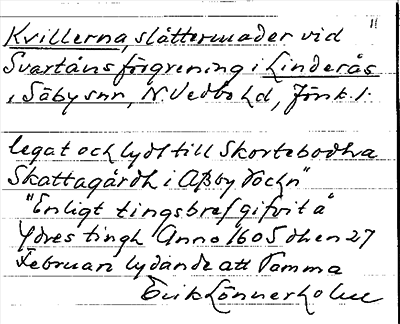 Kvillerna, slåttermader vid "
Svartåns förgrening i Linderås
, Säby snr, N. Vedbo hd, Jönk. l.
legat och lydt till Skortebodha
Skattagårdh i Aßby Sochn"
"Enligt tingsbref gifvit å
Ydres tingh Anno 1605 dhen 27
Februari lydande att Samma
Erik Lönnerholm